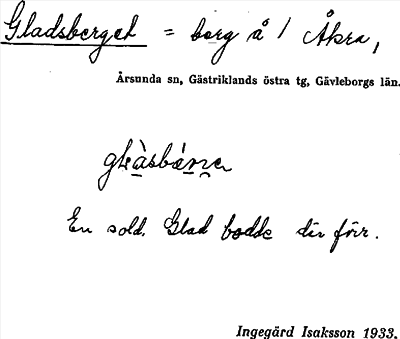 Gladsberget = berg å / Åkra,
Årsunda sn, Gästriklands östra tg, Gävleborgs län.
En sold. Glad bodde där förr.
Ingegärd Isaksson 1933.